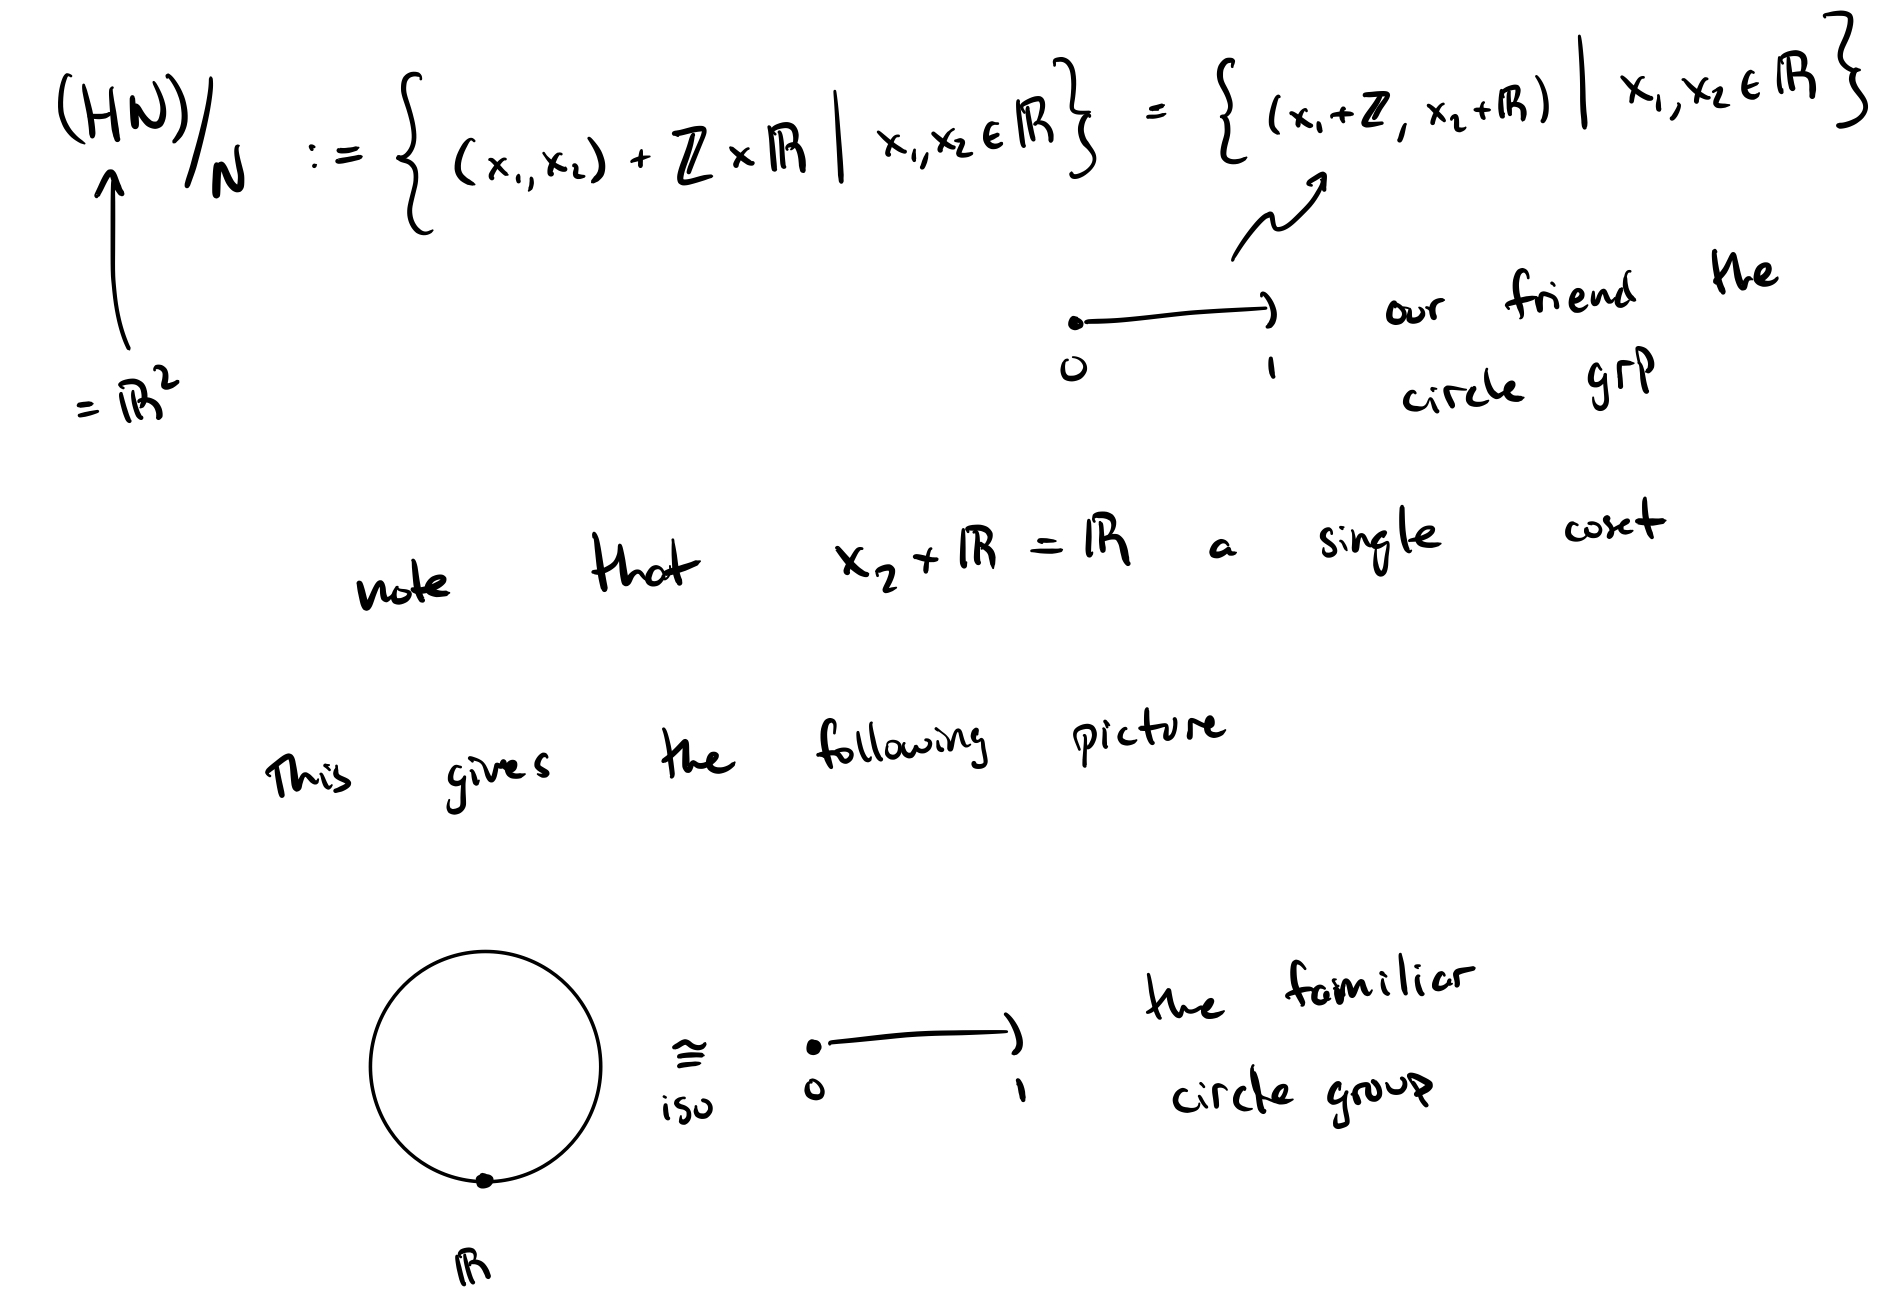 (HN)/N := { (x₁,x₂) + ℤ × ℝ | x₁,x₂ ∈ ℝ } = { (x₁+ℤ, x₂+ℝ) | x₁,x₂ ∈ ℝ }
= ℝ²
0 1 our friend the
circle grp
note that x₂ + ℝ = ℝ a single coset
This gives the following picture
≅ the familiar
iso 0 1 circle group
ℝ